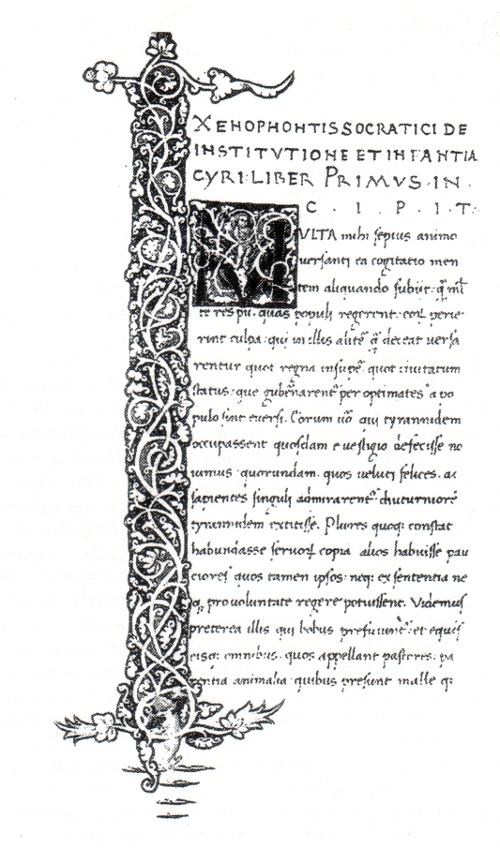 XENOPHONTIS SOCRATICI DE
INSTITVTIONE ET INFANTIA
CYRI·LIBER PRIMVS·IN·
C · I · P · I · T:
MVLTA mihi sepius animo
versanti ea cogitatio men
tem aliquando subiit·
te res pu: quas populi regerent·
rint culpa· qui in illis deceat versa
rentur quot regna quot civitatum
status· que per optimates a po
pulo sint eversi. Eorum qui tyrannidem
occupassent quosdam e vestigio defecisse no
vimus quorundam. quos veluti felices. ac
sapientes singuli diuturniorē
tyrannidem extitisse. Plures quoq; constat
habundasse copia alios habuisse pau
ciores quos tamen ipsos· neq; ex sententia ne
q; pro voluntate regere potuissent. Videmus
preterea illis qui bobus et equis
eisq; omnibus. quos appellant pastores. pa
rentia animalia quibus presunt malle q;